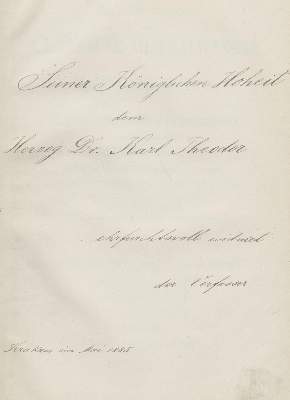 Seiner Königlichen Hoheit
dem
Herzog Dr. Karl Theodor
ehrfurchtsvoll widmet
der Verfasser
Krakau im Mai 1885